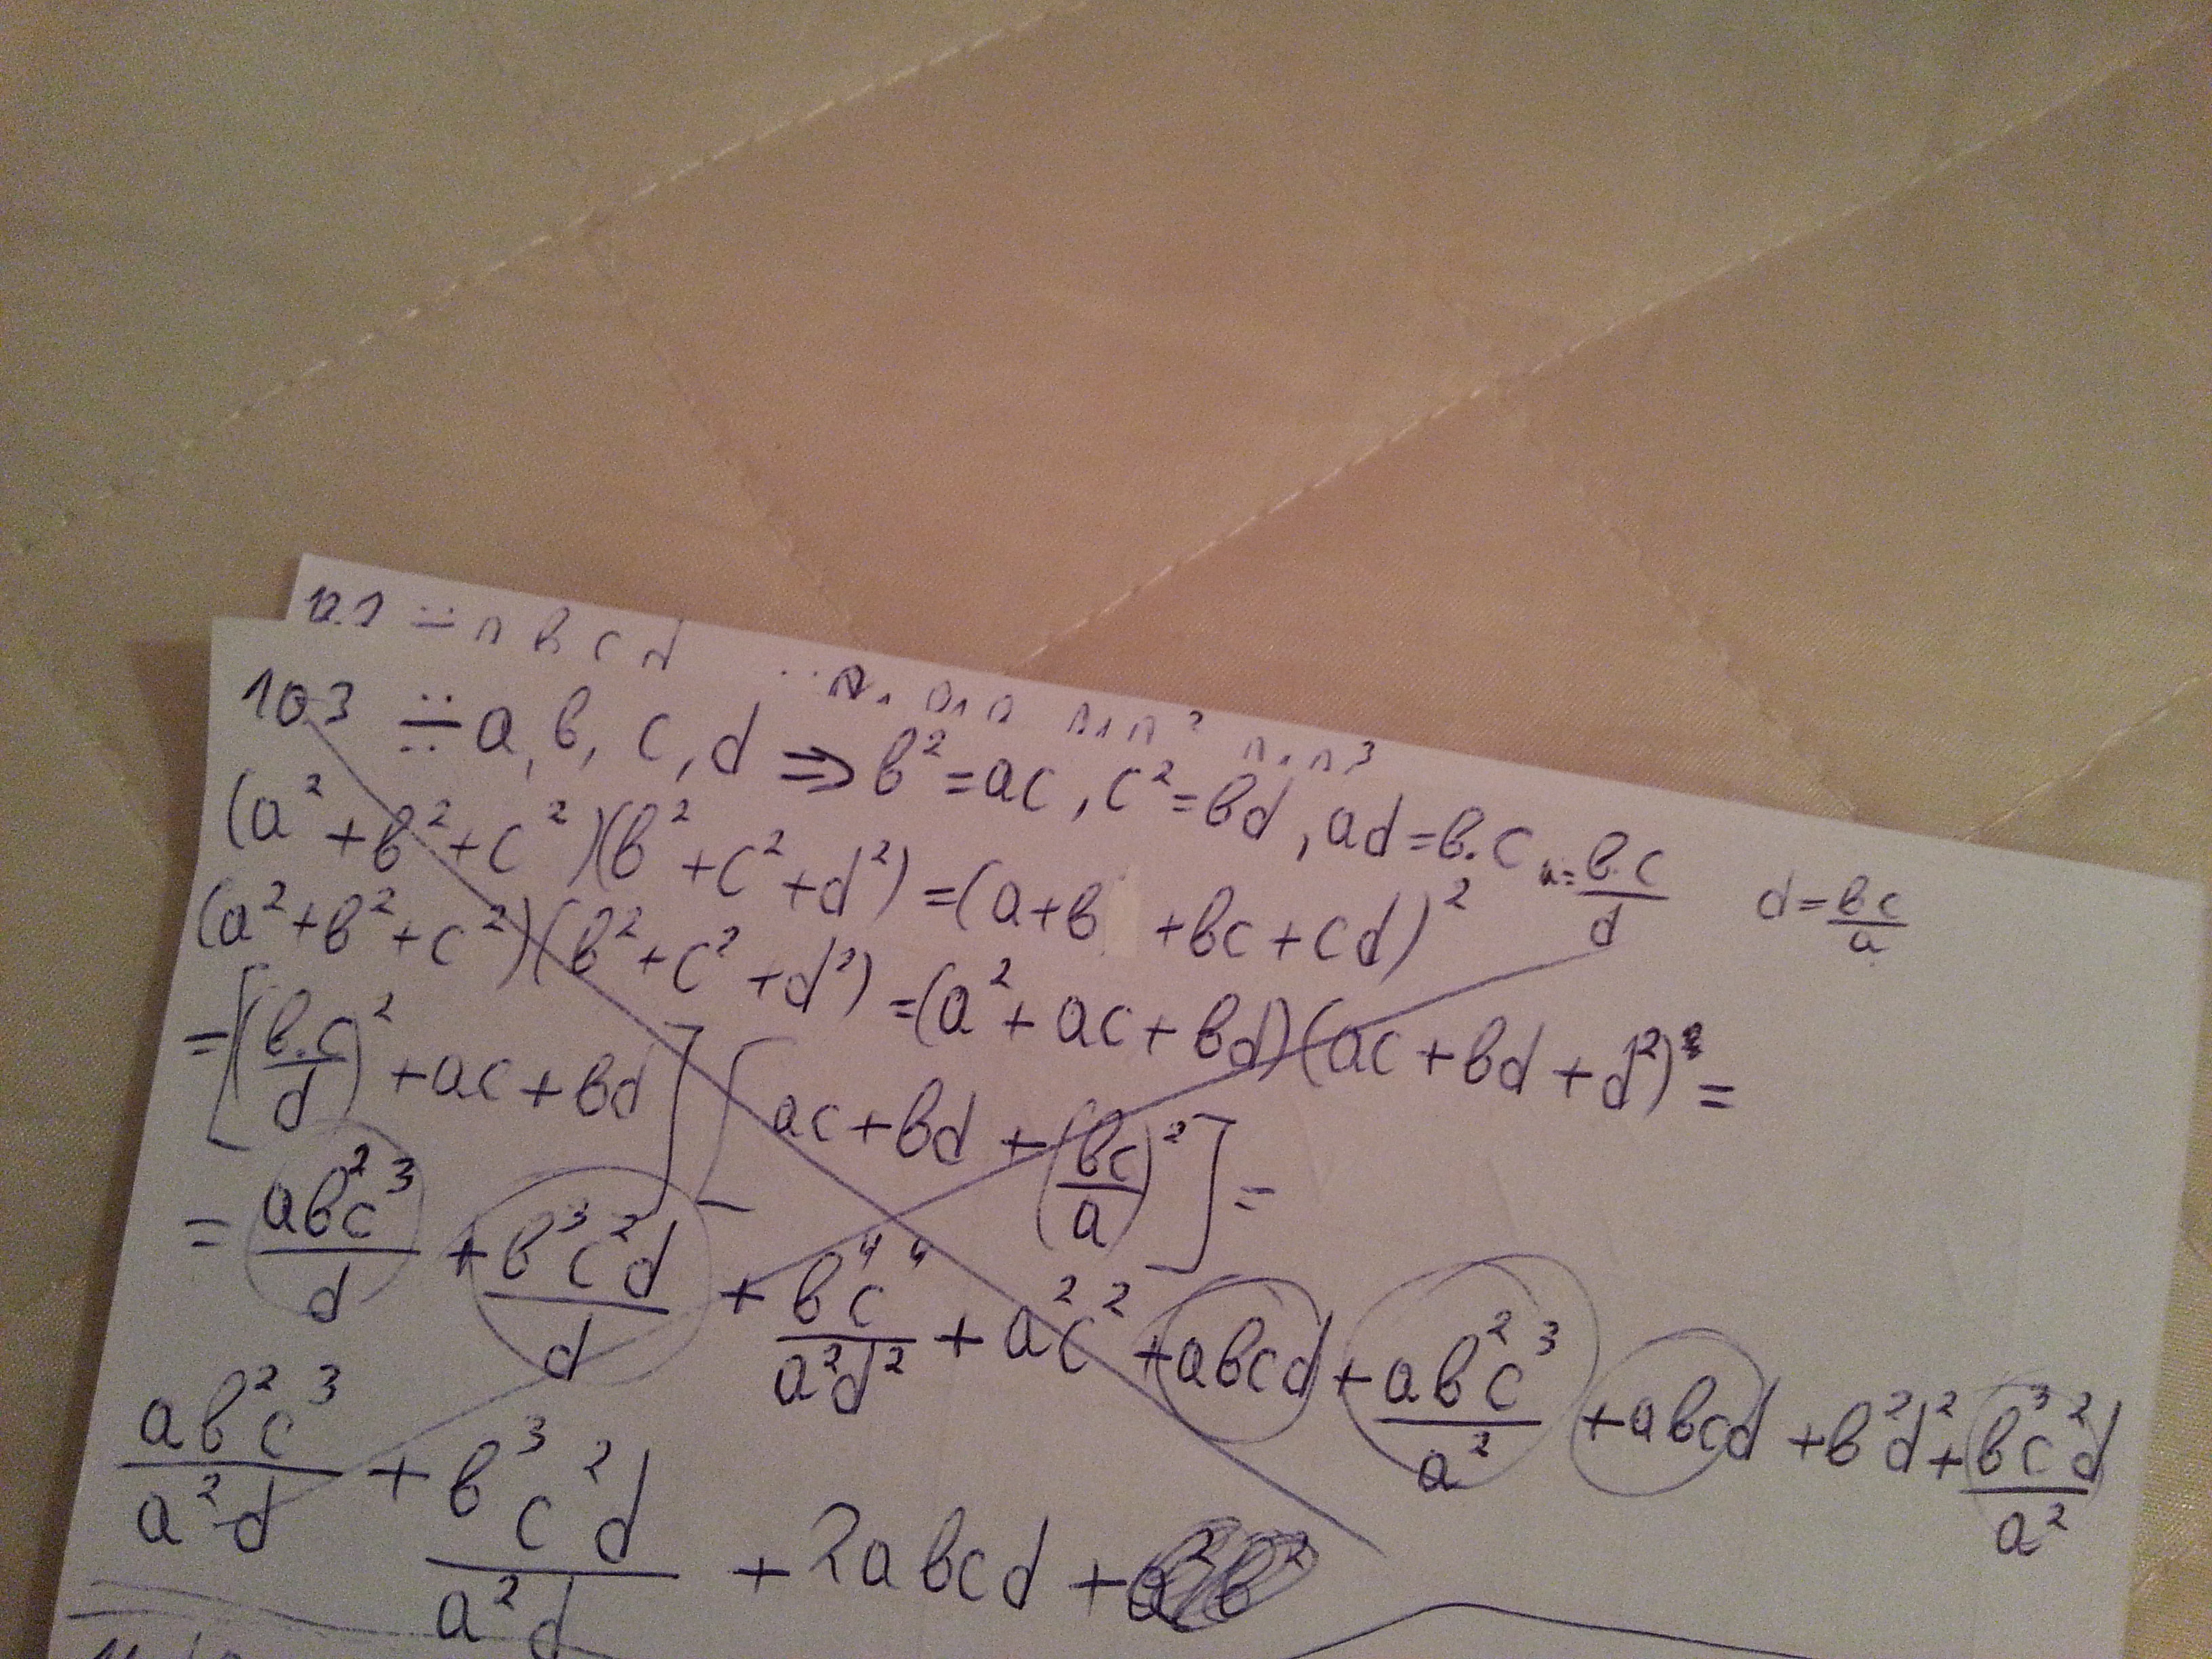 a b c d
103 ∺ a, b, c, d ⇒ b² = ac, c² = bd, ad = b.c a = b.c/d d = bc/a
(a² + b² + c²)(b² + c² + d²) = (a+b +bc + cd)²
(a² + b² + c²)(b² + c² + d²) = (a² + ac + bd)(ac + bd + d²) =
= [(b.c/d)² + ac + bd] [ac + bd + (bc/a)²] =
= ab²c³/d + b³c²d/d + b⁴c⁴/a²d² + a²c² + abcd + ab²c³/a² + abcd + b²d² + b³c²d/a²
ab²c³/a²d + b³c²d/a²d + 2abcd +